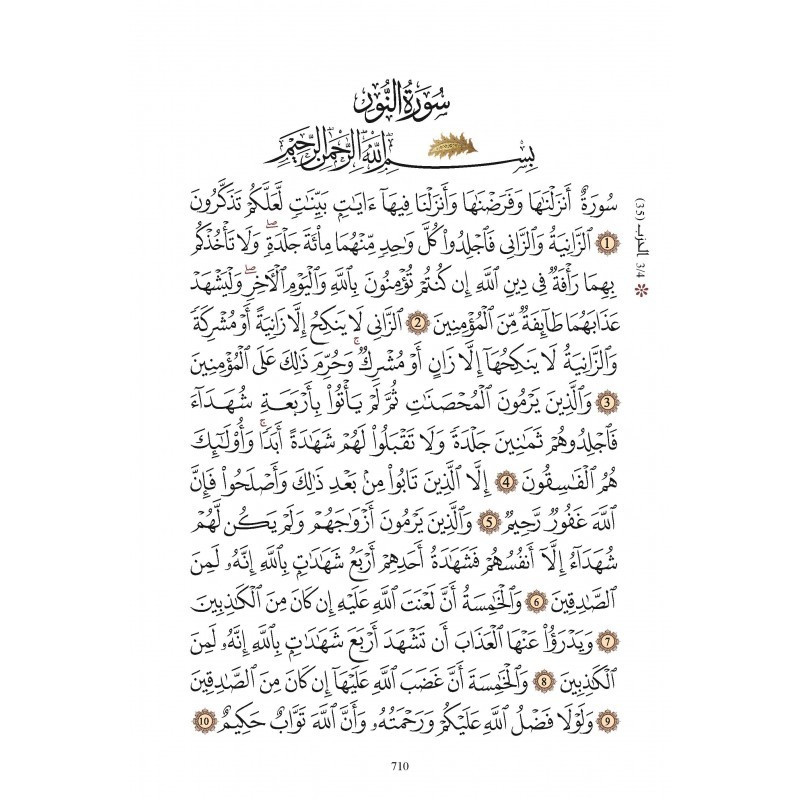 سُورَةُ النُّورِ
بِسْمِ اللَّهِ الرَّحْمَٰنِ الرَّحِيمِ
سُورَةٌ أَنزَلْنَٰهَا وَفَرَضْنَٰهَا وَأَنزَلْنَا فِيهَآ ءَايَٰتٍۭ بَيِّنَٰتٍ لَّعَلَّكُمْ تَذَكَّرُونَ
1 ٱلزَّانِيَةُ وَٱلزَّانِى فَٱجْلِدُوا۟ كُلَّ وَٰحِدٍ مِّنْهُمَا مِا۟ئَةَ جَلْدَةٍۖ وَلَا تَأْخُذْكُم
بِهِمَا رَأْفَةٌ فِى دِينِ ٱللَّهِ إِن كُنتُمْ تُؤْمِنُونَ بِٱللَّهِ وَٱلْيَوْمِ ٱلْءَاخِرِۖ وَلْيَشْهَدْ
عَذَابَهُمَا طَآئِفَةٌ مِّنَ ٱلْمُؤْمِنِينَ 2 ٱلزَّانِى لَا يَنكِحُ إِلَّا زَانِيَةً أَوْ مُشْرِكَةً
وَٱلزَّانِيَةُ لَا يَنكِحُهَآ إِلَّا زَانٍ أَوْ مُشْرِكٌۚ وَحُرِّمَ ذَٰلِكَ عَلَى ٱلْمُؤْمِنِينَ
3 وَٱلَّذِينَ يَرْمُونَ ٱلْمُحْصَنَٰتِ ثُمَّ لَمْ يَأْتُوا۟ بِأَرْبَعَةِ شُهَدَآءَ
فَٱجْلِدُوهُمْ ثَمَٰنِينَ جَلْدَةً وَلَا تَقْبَلُوا۟ لَهُمْ شَهَٰدَةً أَبَدًاۚ وَأُو۟لَٰٓئِكَ
هُمُ ٱلْفَٰسِقُونَ 4 إِلَّا ٱلَّذِينَ تَابُوا۟ مِنۢ بَعْدِ ذَٰلِكَ وَأَصْلَحُوا۟ فَإِنَّ
ٱللَّهَ غَفُورٌ رَّحِيمٌ 5 وَٱلَّذِينَ يَرْمُونَ أَزْوَٰجَهُمْ وَلَمْ يَكُن لَّهُمْ
شُهَدَآءُ إِلَّآ أَنفُسُهُمْ فَشَهَٰدَةُ أَحَدِهِمْ أَرْبَعُ شَهَٰدَٰتٍۭ بِٱللَّهِ إِنَّهُۥ لَمِنَ
ٱلصَّٰدِقِينَ 6 وَٱلْخَٰمِسَةُ أَنَّ لَعْنَتَ ٱللَّهِ عَلَيْهِ إِن كَانَ مِنَ ٱلْكَٰذِبِينَ
7 وَيَدْرَؤُا۟ عَنْهَا ٱلْعَذَابَ أَن تَشْهَدَ أَرْبَعَ شَهَٰدَٰتٍۭ بِٱللَّهِ إِنَّهُۥ لَمِنَ
ٱلْكَٰذِبِينَ 8 وَٱلْخَٰمِسَةَ أَنَّ غَضَبَ ٱللَّهِ عَلَيْهَآ إِن كَانَ مِنَ ٱلصَّٰدِقِينَ
9 وَلَوْلَا فَضْلُ ٱللَّهِ عَلَيْكُمْ وَرَحْمَتُهُۥ وَأَنَّ ٱللَّهَ تَوَّابٌ حَكِيمٌ 10
3/4 الحزب (35)
710